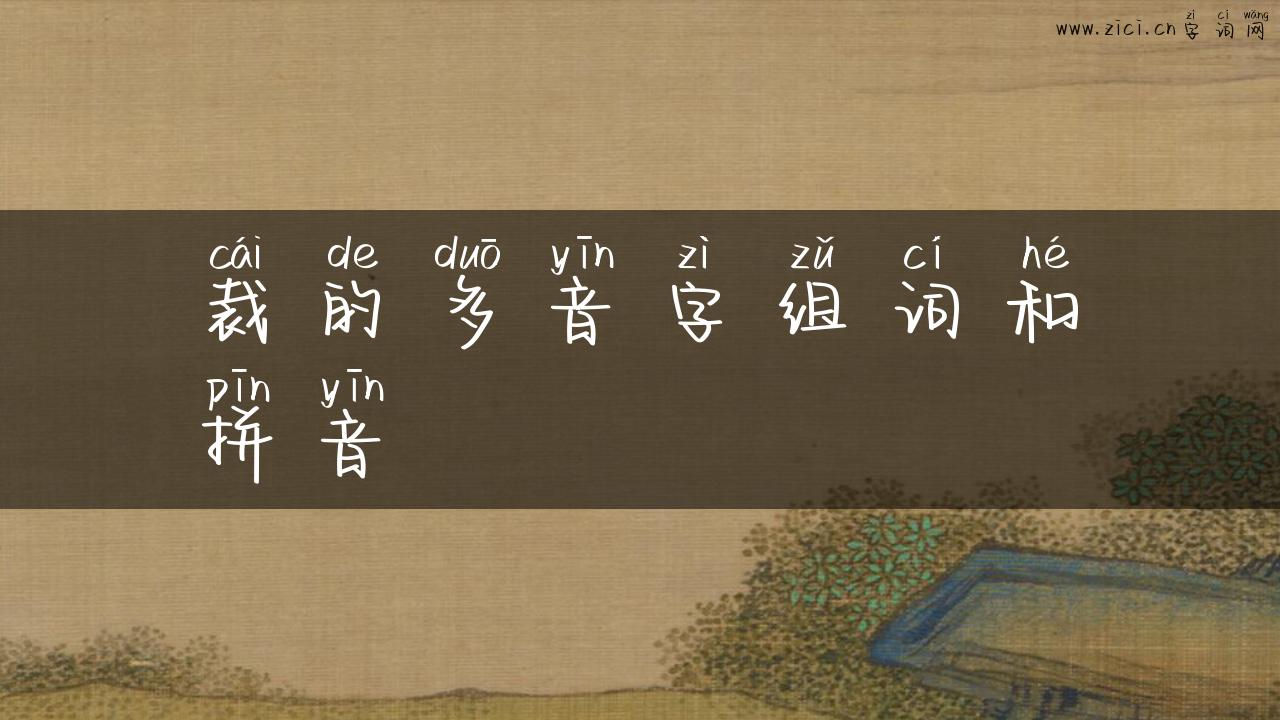 zì cí wǎng
www.zici.cn 字词网
cái de duō yīn zì zǔ cí hé
裁的多音字组词和
pīn yīn
拼音